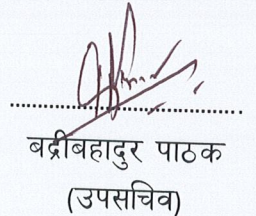 बद्रीबहादुर पाठक
(उपसचिव)